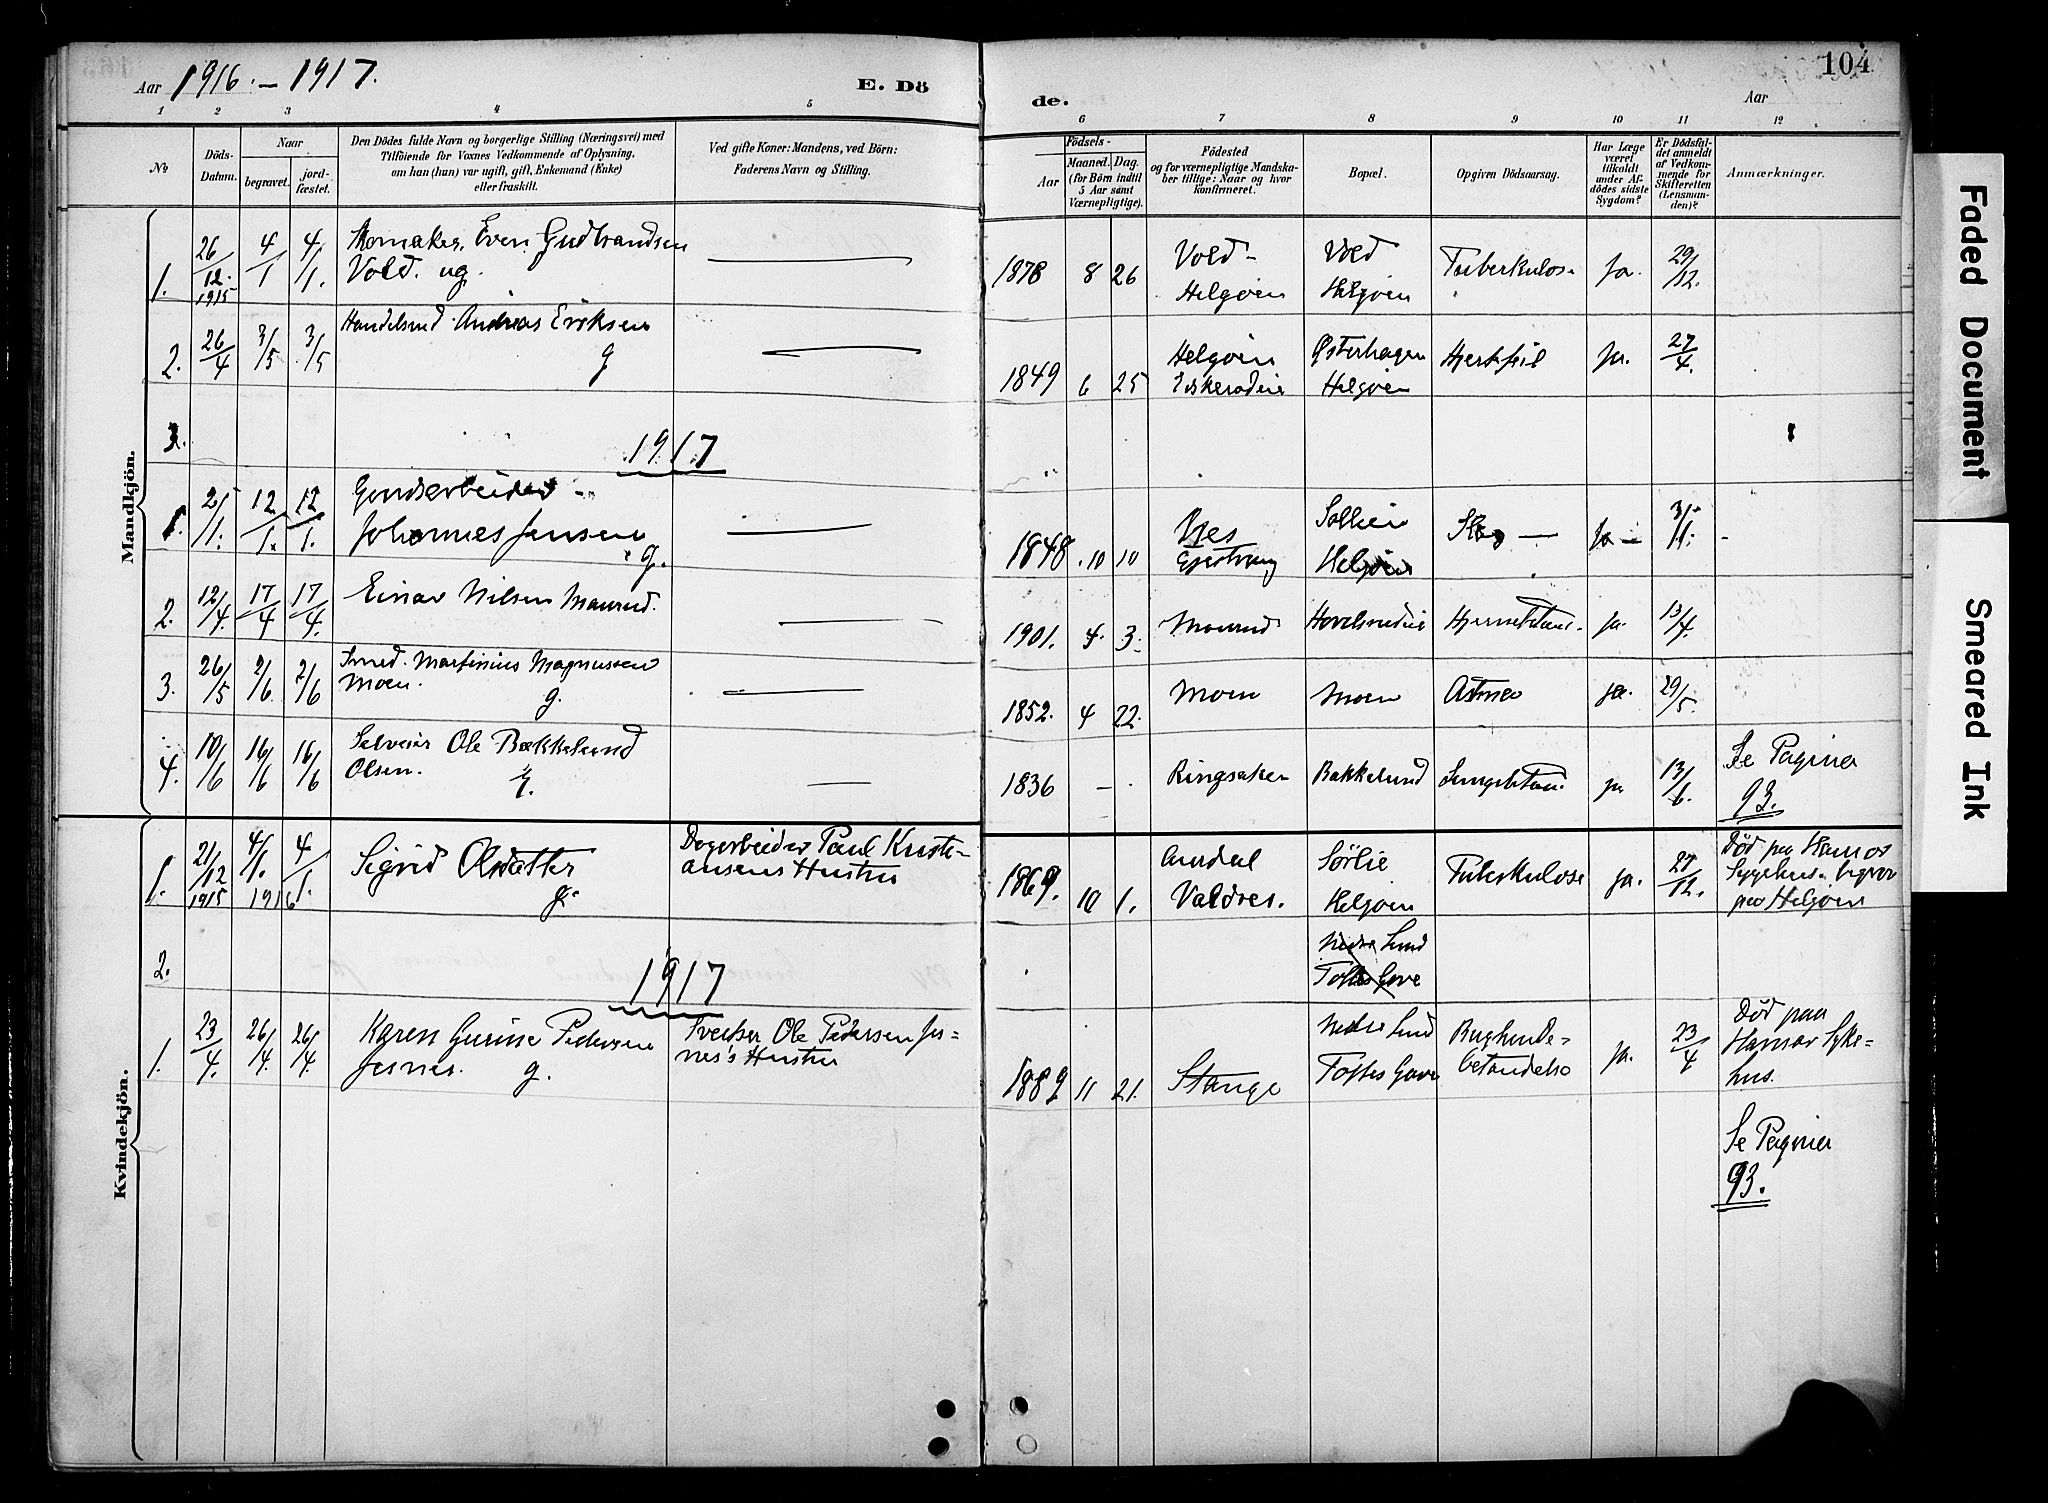 Aar 1916. – 1917.
E. Dö
de.
Aar
104
1 2 3 4 5 6 7 8 9 10 11 12
No.
Döds-
Datum.
Naar
begravet.
jord-
fæstet.
Den Dödes fulde Navn og borgerlige Stilling (Næringsvei) med
Tilföiende for Voxnes Vedkommende af Oplysning,
om han (hun) var ugift, gift, Enkemand (Enke)
eller fraskilt.
Ved gifte Koner: Mandens, ved Börn:
Faderens Navn og Stilling.
Födsels-
Aar
Maaned.
Dag.
(for Börn indtil
5 Aar samt
Værnepligtige).
Födested
og for værnepligtige Mandska-
ber tillige: Naar og hvor
konfirmeret.
Bopæl.
Opgiven Dödsaarsag.
Har Læge
været
tilkaldt
under Af-
dödes sidste
Sygdom?
Er Dödsfal-
det anmeldt
af Vedkom-
mende for
Skifteretten
(Lensman-
den)?
Anmærkninger.
Mandkjön.
1. 26/12. 1915 4/1 4/1. Skomaker Even Gudbrandsen
Vold. ug. —
1878 8 26 Vold -
Helgøen
Vold
Helgøen
Tuberkulose Ja. 29/12.
2. 26/4 3/5 3/5 Handelsmd. Andreas Eriksen
g —
1849 6 25 Helgøen
Eskerudeie
Østerhagen
Helgøen
Hjertefeil Ja. 27/4.
3.
1917
1. 2/1. 12/1. 12/1. Gaardsarbeider -
Johannes Jensen
g. —
1848 10 10 Nes
Sollien
Helgøen
Ja — 3/1.
2. 12/4. 17/4 17/4. Einar Nilsen Maurud. —
1901. 4. 3. Maurud Ja. 13/4.
3. 26/5 2/6 2/6 Smed. Martinius Magnussen
Moen. g. —
1852. 4 22. Moen Moen Astma Ja. 29/5.
4. 10/6 16/6 16/6 Selveier Ole Bækkelund
Olsen. —
1836 — Ringsaker Bækkelund Ja 13/6. Se Pagina
93.
Kvindekjön.
1. 21/12 1915 4/1. 1916 4/1. Sigrid Olsdatter
g.
Dagarbeider Paul Kristi-
ansens Hustru
1869. 10 1. Aurdal
Valdres.
Sørlie
Helgøen
Tuberkulose Ja. 27/12. Død paa Hamar
Sygehus.
paa Helgøen
2.
Nedre Lund
Toftes Gave
1917
1. 23/4. 26/4. 26/4. Karen Gurine Pedersen
Jesnes. g.
Sveitser Ole Pedersen Jes-
nes's Hustru
1889 11 21. Stange
Nedre Lund
Toftes Gave
Bughinde-
betændelse Ja. 23/4 Død paa
Hamar Syke-
hus.
Se Pagina
93.
Faded Document
Smeared Ink